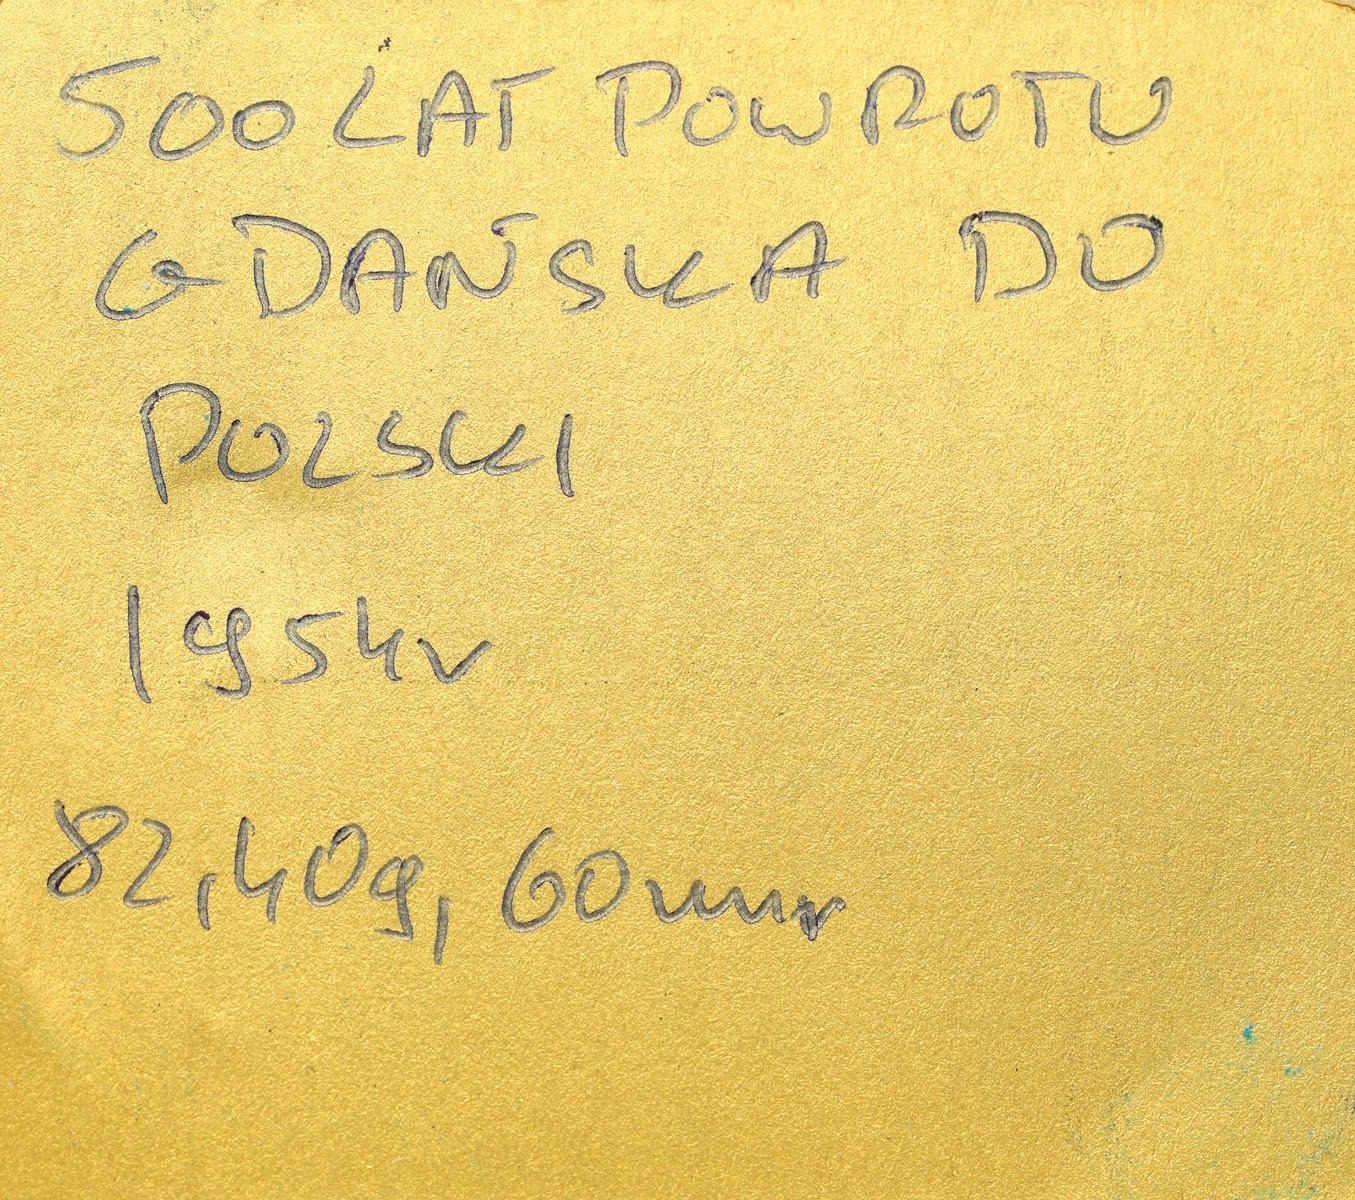 500 LAT POWROTU
GDAŃSKA DO
POLSKI
1954r
82,40g, 60mm